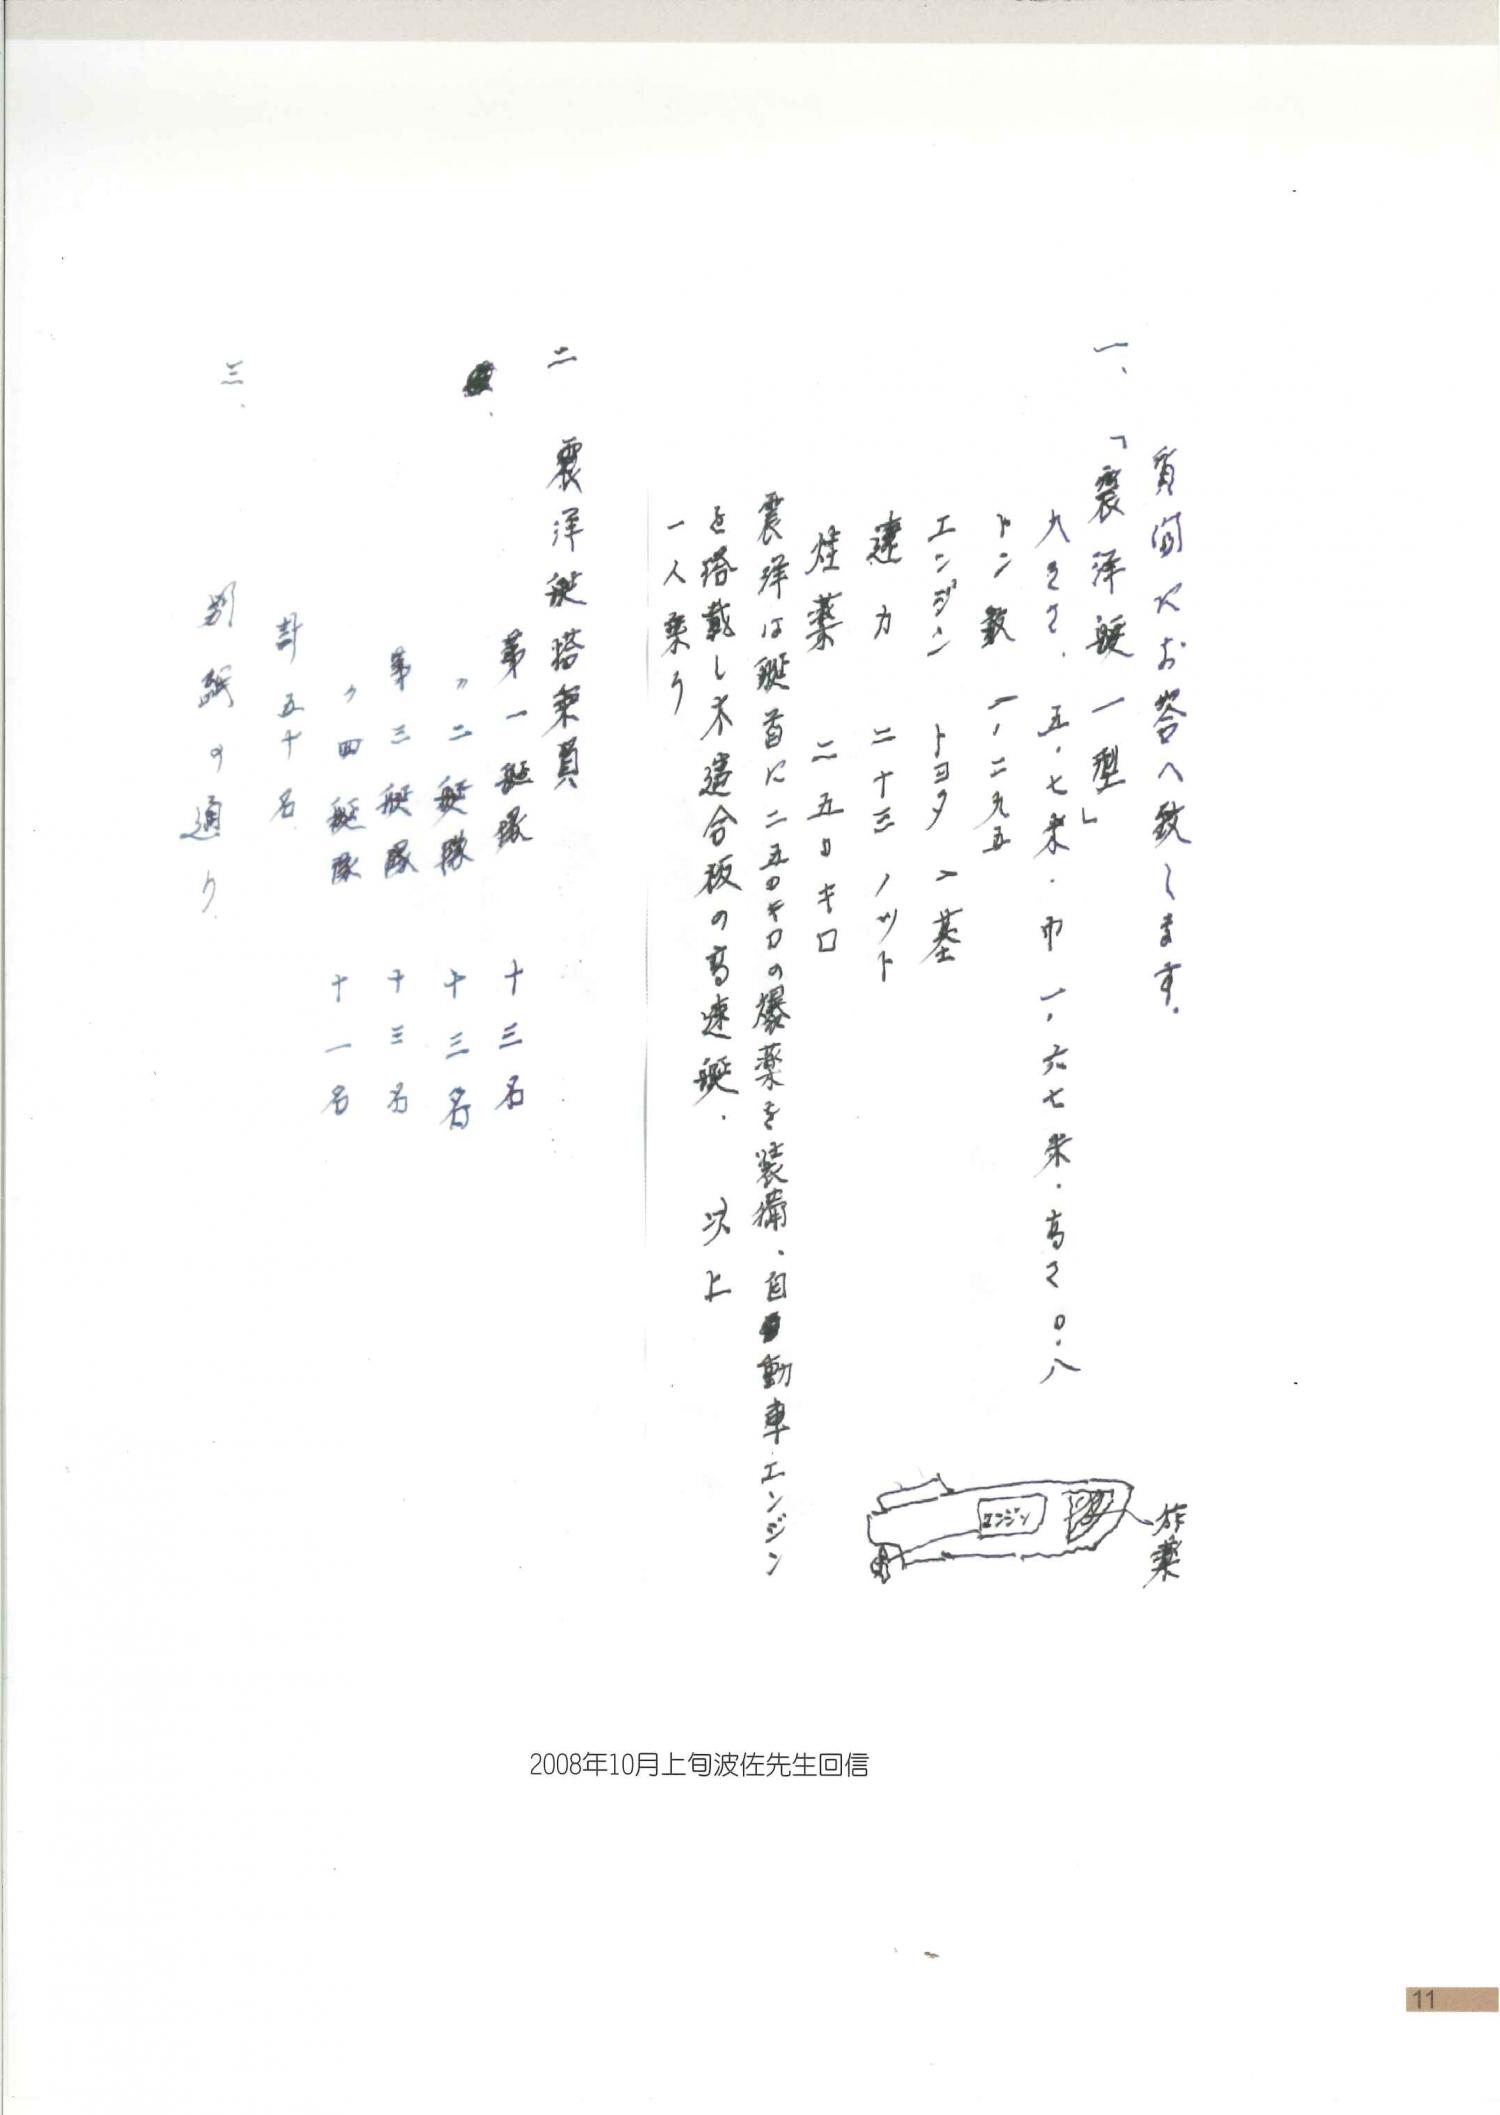 質問にお答へ致します。
一、「震洋艇一型」
大きさ、五・七米・巾一・六七米・高さ〇・八
トン数 一・二九五
エンジン トヨタ 一基
速力 二十三ノット
炸薬 二五〇キロ
震洋は艇首に二五〇キロの爆薬を装備、自動車エンジン
を搭載し木造合板の高速艇. 以上
一人乗り
二 震洋艇搭乗員
第一艇隊 十三名
〃二艇隊 十三名
第三艇隊 十三名
〃四艇隊 十一名
計五十名
三、 別紙の通り
エンジン
炸薬
2008年10月上旬波佐先生回信
11